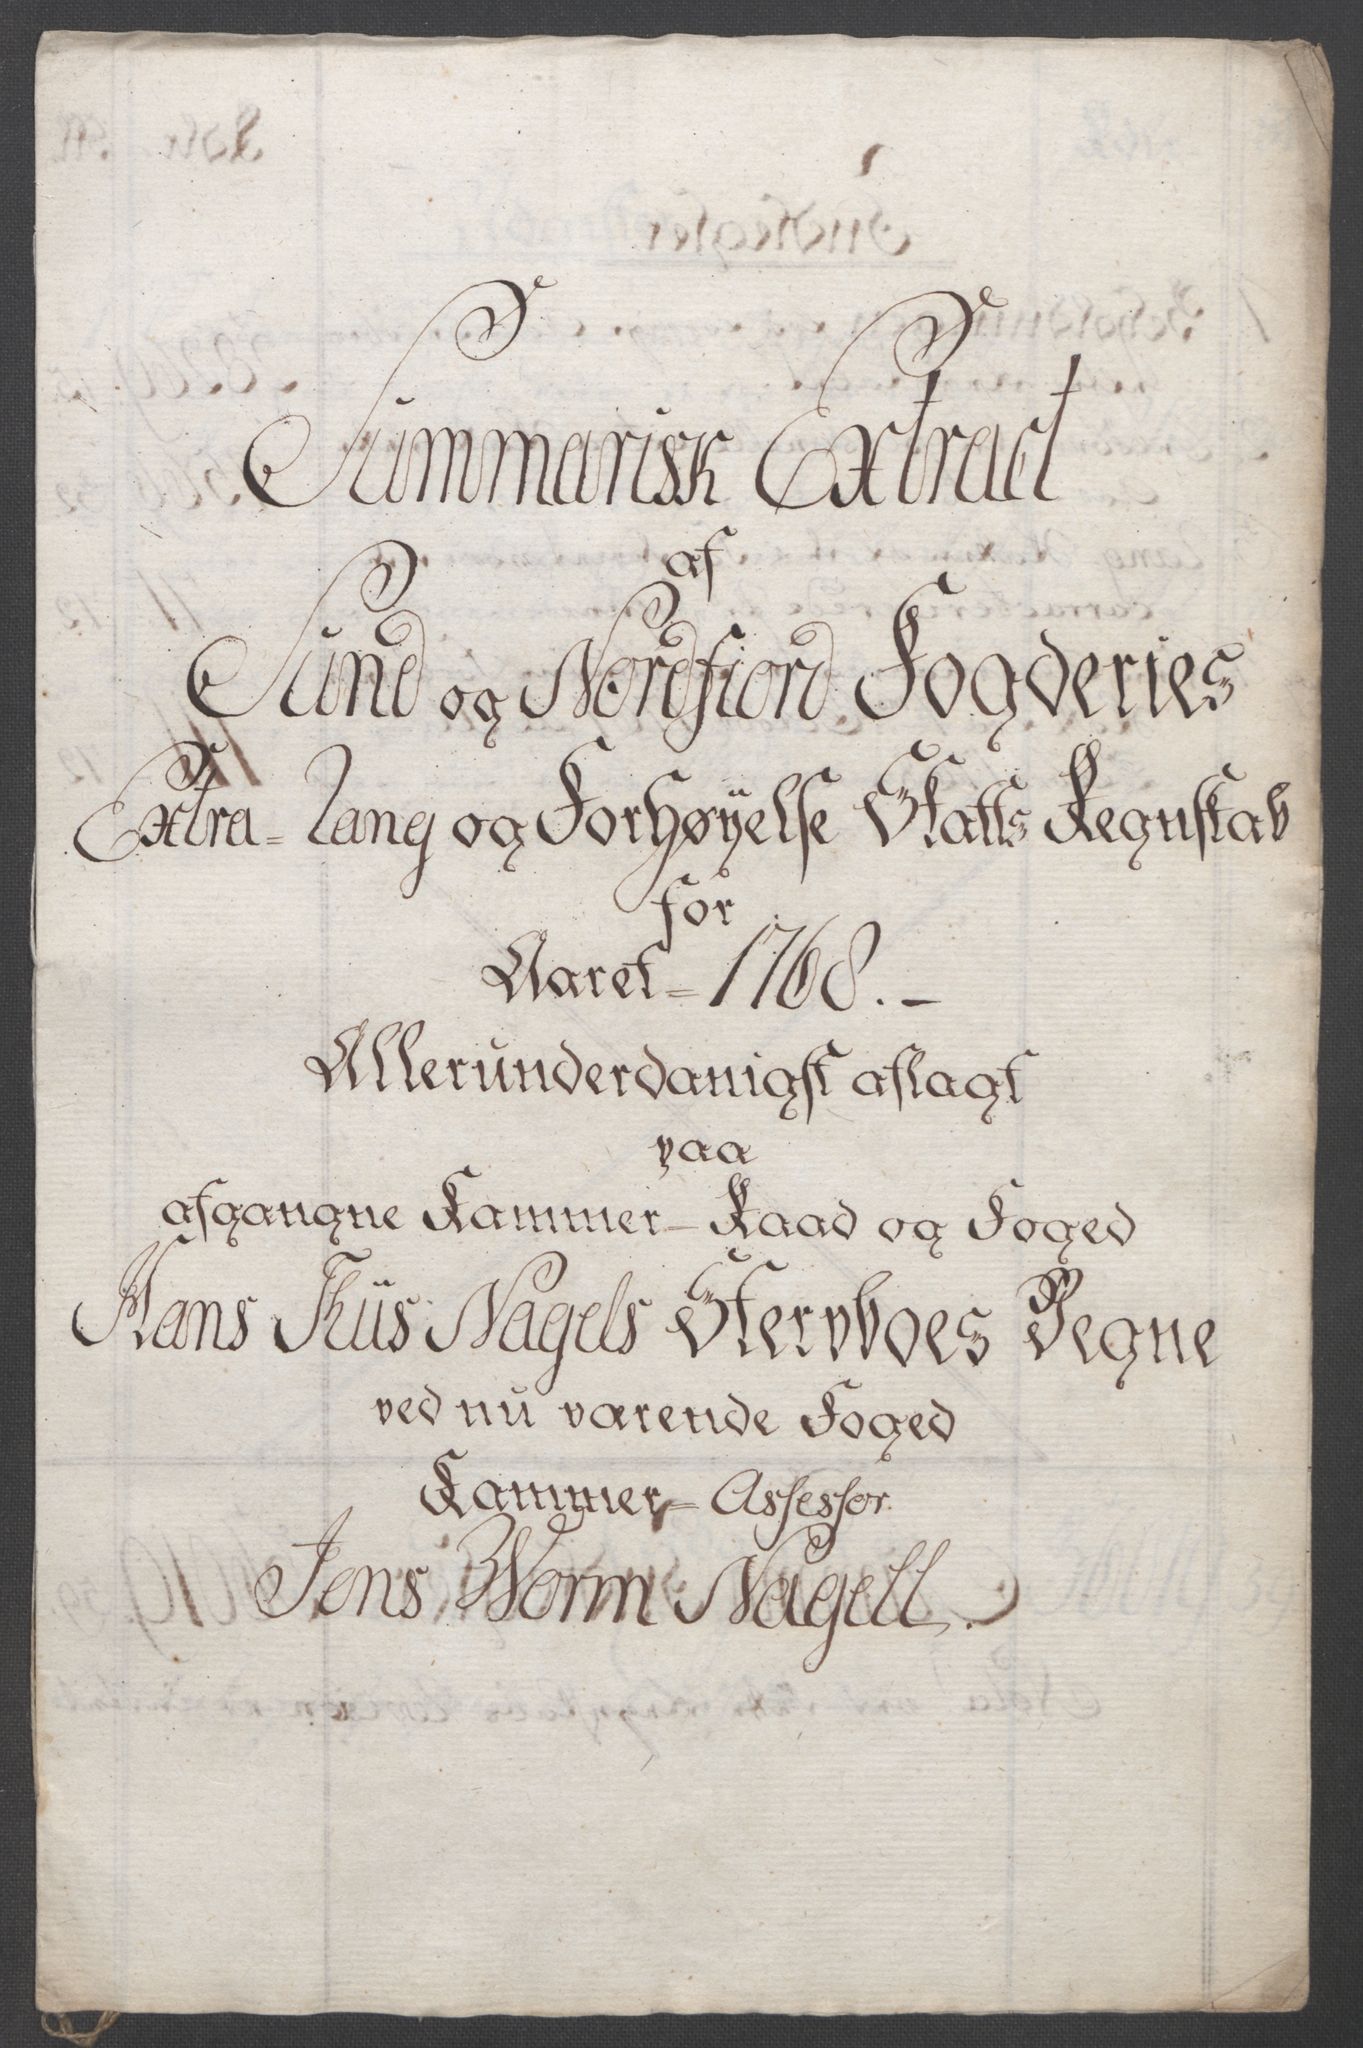 Summarisk Extract
af
Sund og Nordfiord Fogderies
Extra- Lang og Forhøyelse Skatts Regnskab
for
Aaret- 1768.-
Allerunderdanigst aflagt
paa
afgangne Kammer- Raad og Foged
Hans Thiis Nagels Stervboes Vegne
ved nu værende Foged
Kammer- Assessor
Jens Worm Nagell.